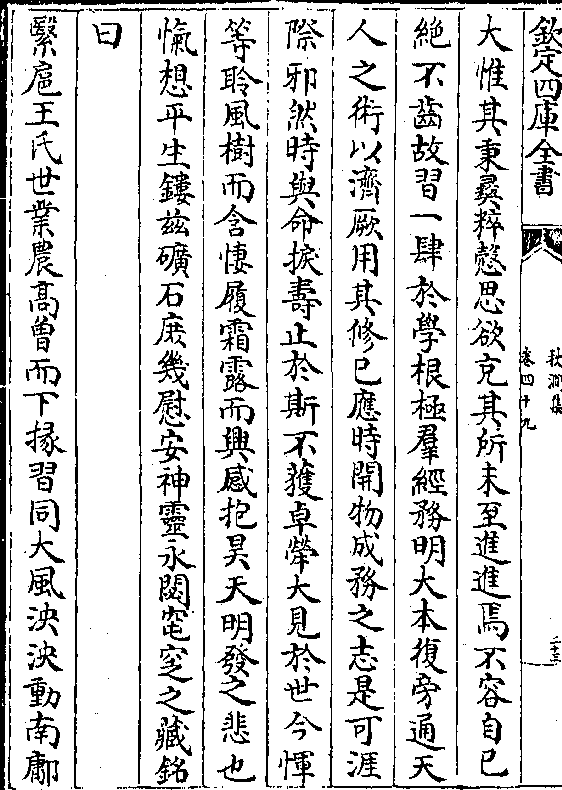 欽定四庫全書
秋澗集
卷四十九
二十三
大惟其秉彛粹慤思欲充其所未至進進焉不容自已
絶不齒故習一肆於學根極羣經務明大本復旁通天
人之術以濟厥用其修已應時開物成務之志是可涯
際邪然時與命捩壽止於斯不獲卓犖大見於世今惲
等聆風樹而含悽履霜露而興感抱昊天明發之悲也
愾想平生鏤兹礦石庶幾慰安神靈永閟窀穸之藏銘
曰
繄扈王氏世業農高曾而下掾習同大風泱泱動南鄘